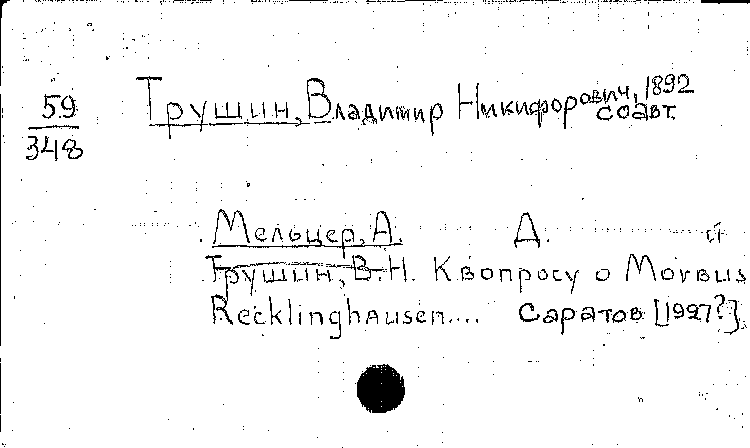 59
348
Трушин, Владимир Никифорович, 1892
соавт.
Мельцер, А. Д. и
Трушин, В. Н. К вопросу о Morbus
Recklinghausen.... Саратов [1927?]